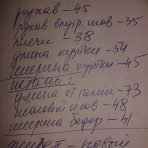 рукав - 45
рукав внутр шов - 35
плечи - 38
длина куртки - 54
ширина куртки - 45
штаны:
длина от талии - 73
шаговый шов - 48
ширина бедер - 41